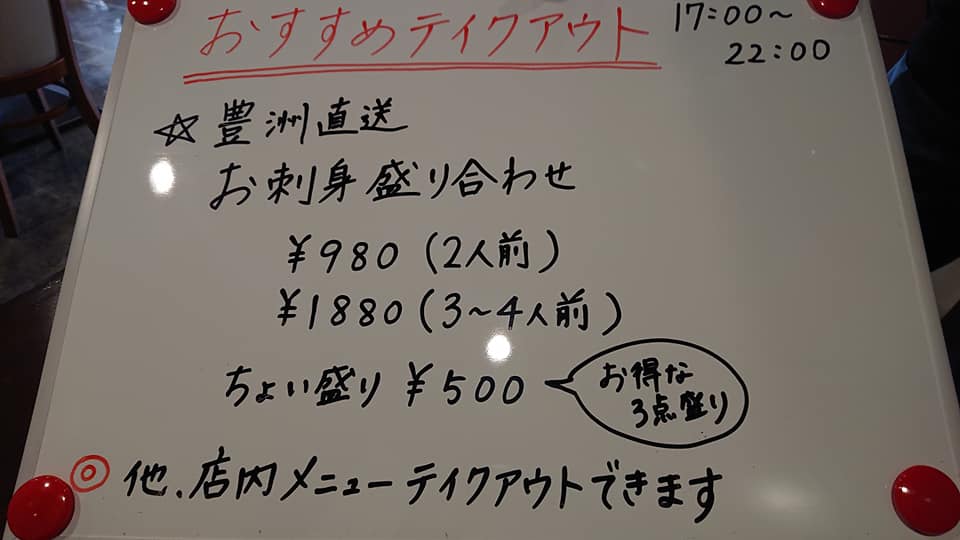 おすすめテイクアウト
17:00~
22:00
☆豊洲直送
お刺身盛り合わせ
¥980(2人前)
¥1880(3~4人前)
ちょい盛り ¥500
お得な
3点盛り
◎他、店内メニューテイクアウトできます